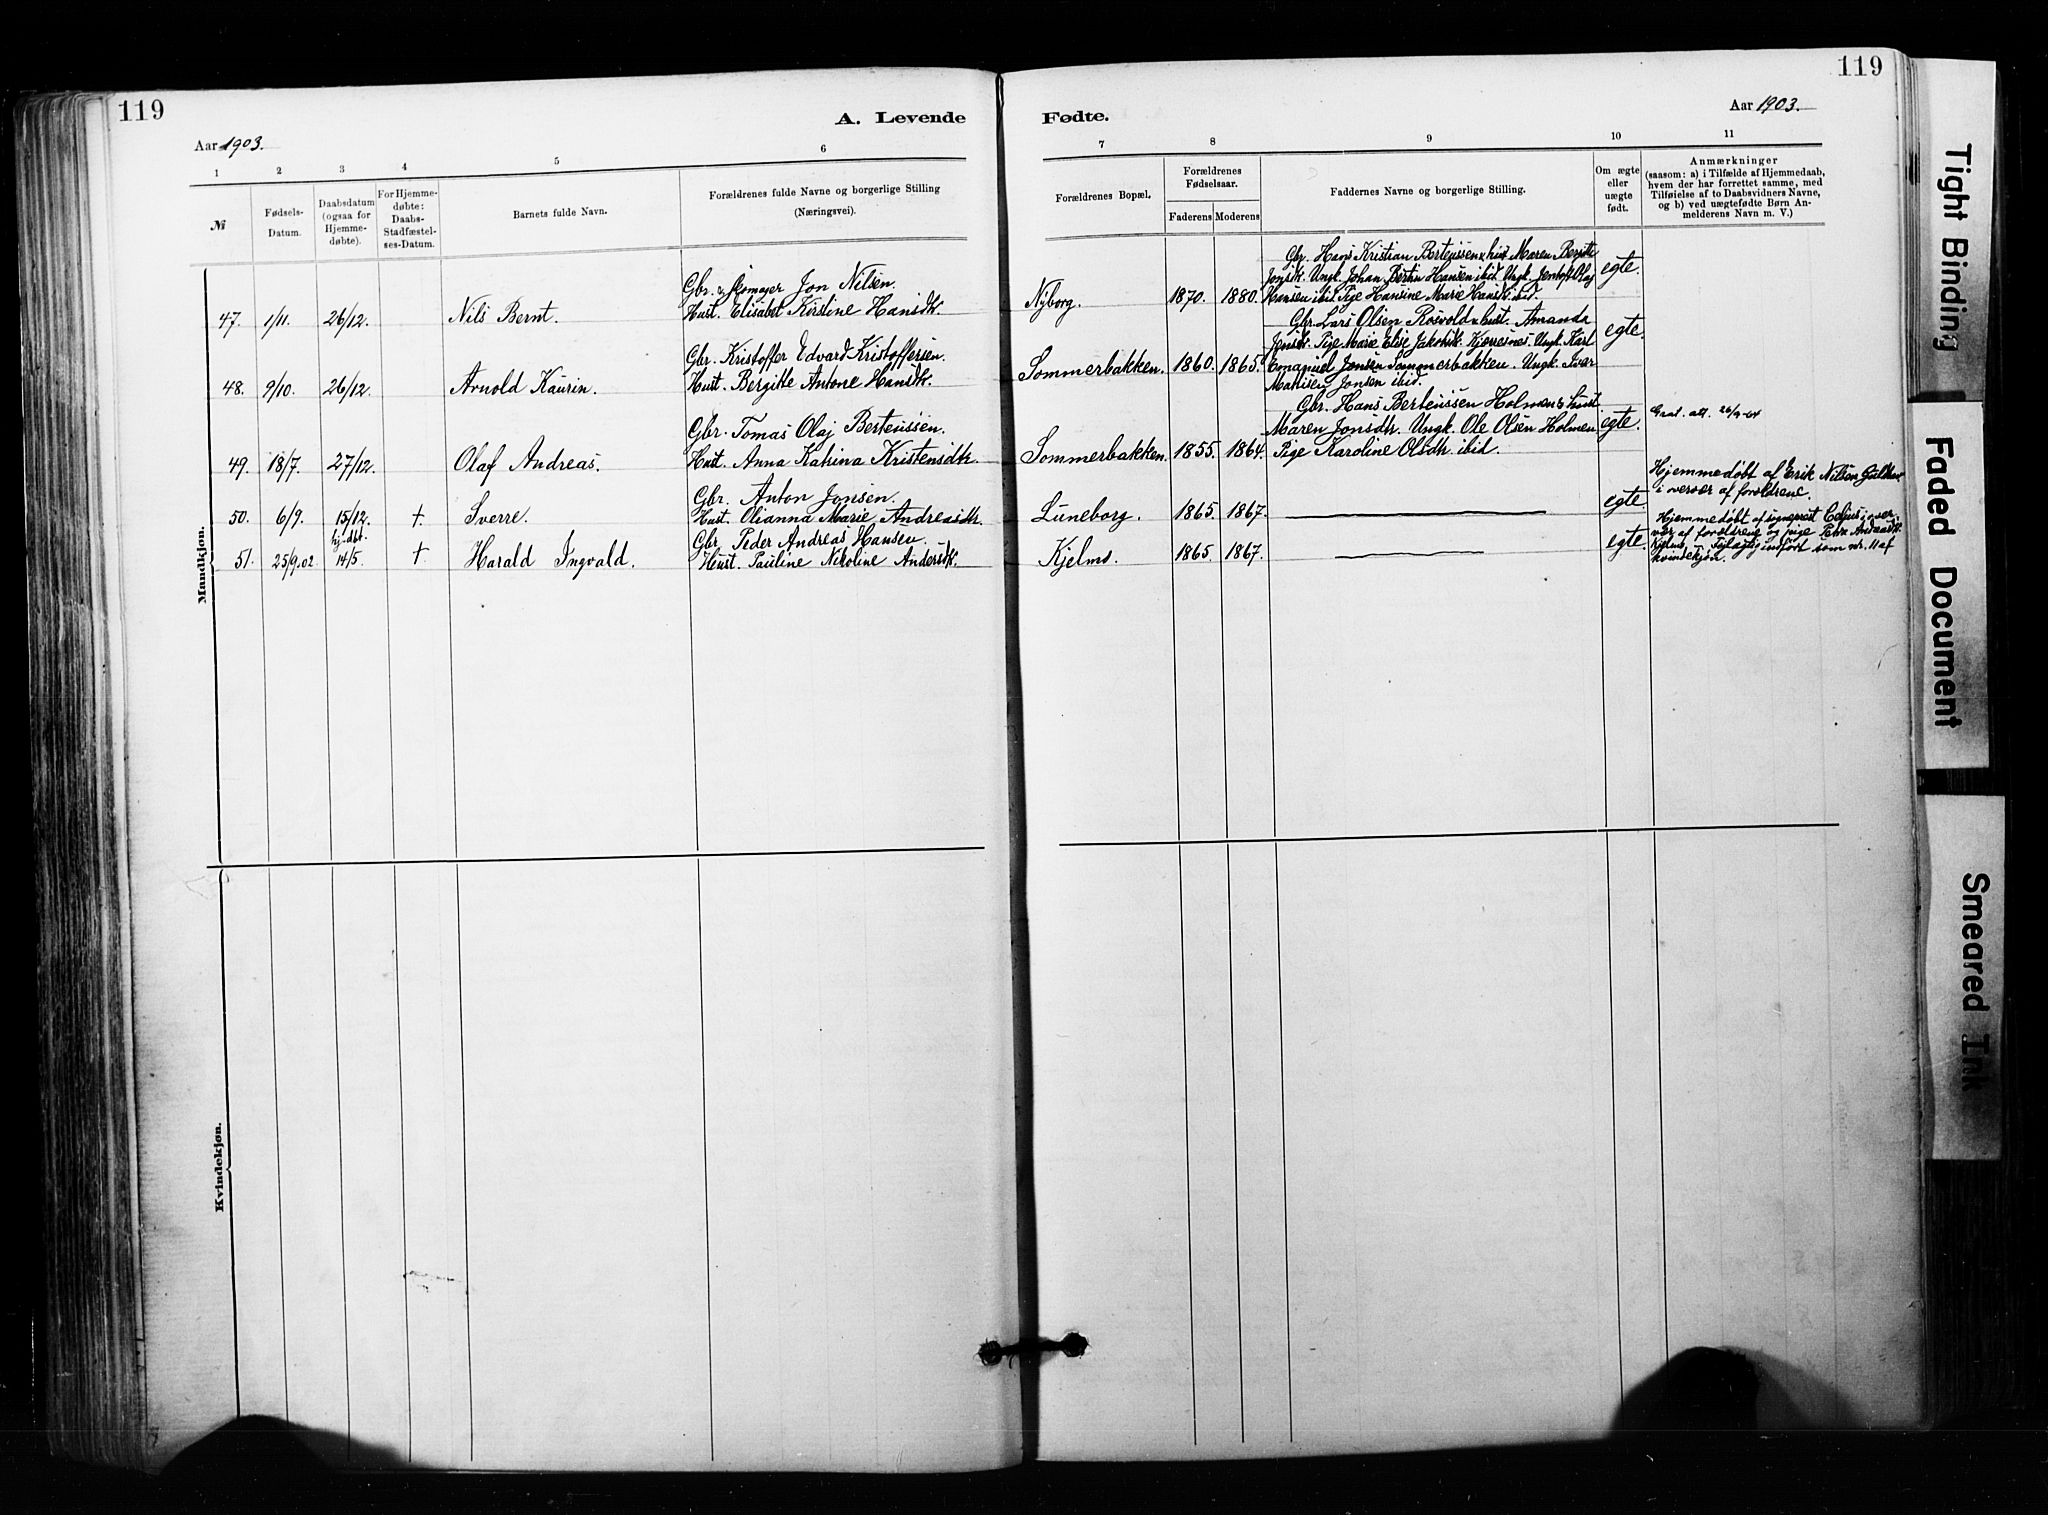 119
Aar 1903.
A. Levende
1 2 3 4 5 6
№
Fødsels-
Datum.
Daabsdatum
(ogsaa for
Hjemme-
døbte).
For Hjemme-
døbte:
Daabs-
Stadfæstel-
ses-Datum.
Barnets fulde Navn.
Forældrenes fulde Navne og borgerlige Stilling
(Næringsvei).
Mandkjøn.
Gbr. Jon Nilsen.
47. 1/11. 26/12. Nils Bernt. Hust. Elisabet Kirstine Hansdtr.
Gbr. Kristoffer Edvard Kristoffersen.
48. 9/10. 26/12. Arnold Kaurin. Hust. Bergitte Antone Hansdtr.
Gbr. Tomas Olaj Berteussen.
49. 18/7. 27/12. Olaf Andreas. Hust. Anna Katrina Kristensdtr.
Gbr. Anton Jonsen.
50. 6/9. 15/12. † Sverre. Hust. Olianna Marie Andreasdtr.
hj.dbt. Gbr. Peder Andreas Hansen.
51. 25/9.02. 14/5. † Harald Ingvald. Hust. Pauline Nikoline Andersdtr.
Kvindekjøn.
119
Aar 1903.
Fødte.
7 8 9 10 11
Forældrenes Bopæl.
Forældrenes
Fødselsaar.
Faderens Moderens
Faddernes Navne og borgerlige Stilling.
Om ægte
eller
uægte
født.
Anmærkninger
(saasom: a) i Tilfælde af Hjemmedaab,
hvem der har forrettet samme, med
Tilføielse af to Daabsvidners Navne,
og b) ved uægtefødte Børn An-
melderens Navn m. V.)
Gbr. Hans Kristian Berteussen & hust Maren Bergitte
Jonsdtr. Ungk. Johan Bertin Hansen ibid. Ungk. Jentoft Olaj egte.
Nyborg. 1870. 1880. Hansen ibid. Pige Hansine Marie Hansdtr. ibid.
Gbr. Lars Olsen Rosvold & hust. Amanda
Jensdtr. Pige Marie Elise Jakobsdtr. Kjerresnes. Ungk. Karl egte.
Sommerbakken. 1860. 1865. Emanuel Jonsen Sommerbakken. Ungk. Ivar
Mathisen Jonsen ibid.
Gbr. Hans Berteussen Holmen & hust.
Maren Jonsdtr. Ungk. Ole Olsen Holmen egte.
Sommerbakken. 1855. 1864. Pige Karoline Olsdtr. ibid.
Hjemmedøbt af Erik Nilsen
i overvær af foreldrene.
Luneborg. 1865. 1867. egte.
Hjemmedøbt af sogneprest i over-
vær af foreldrene og pige
Kjelmo. 1865. 1867. egte.
Kjelmo. Feilagtig indført som nr. 11 af
kvindekjøn.
Tight Binding
Faded Document
Smeared Ink